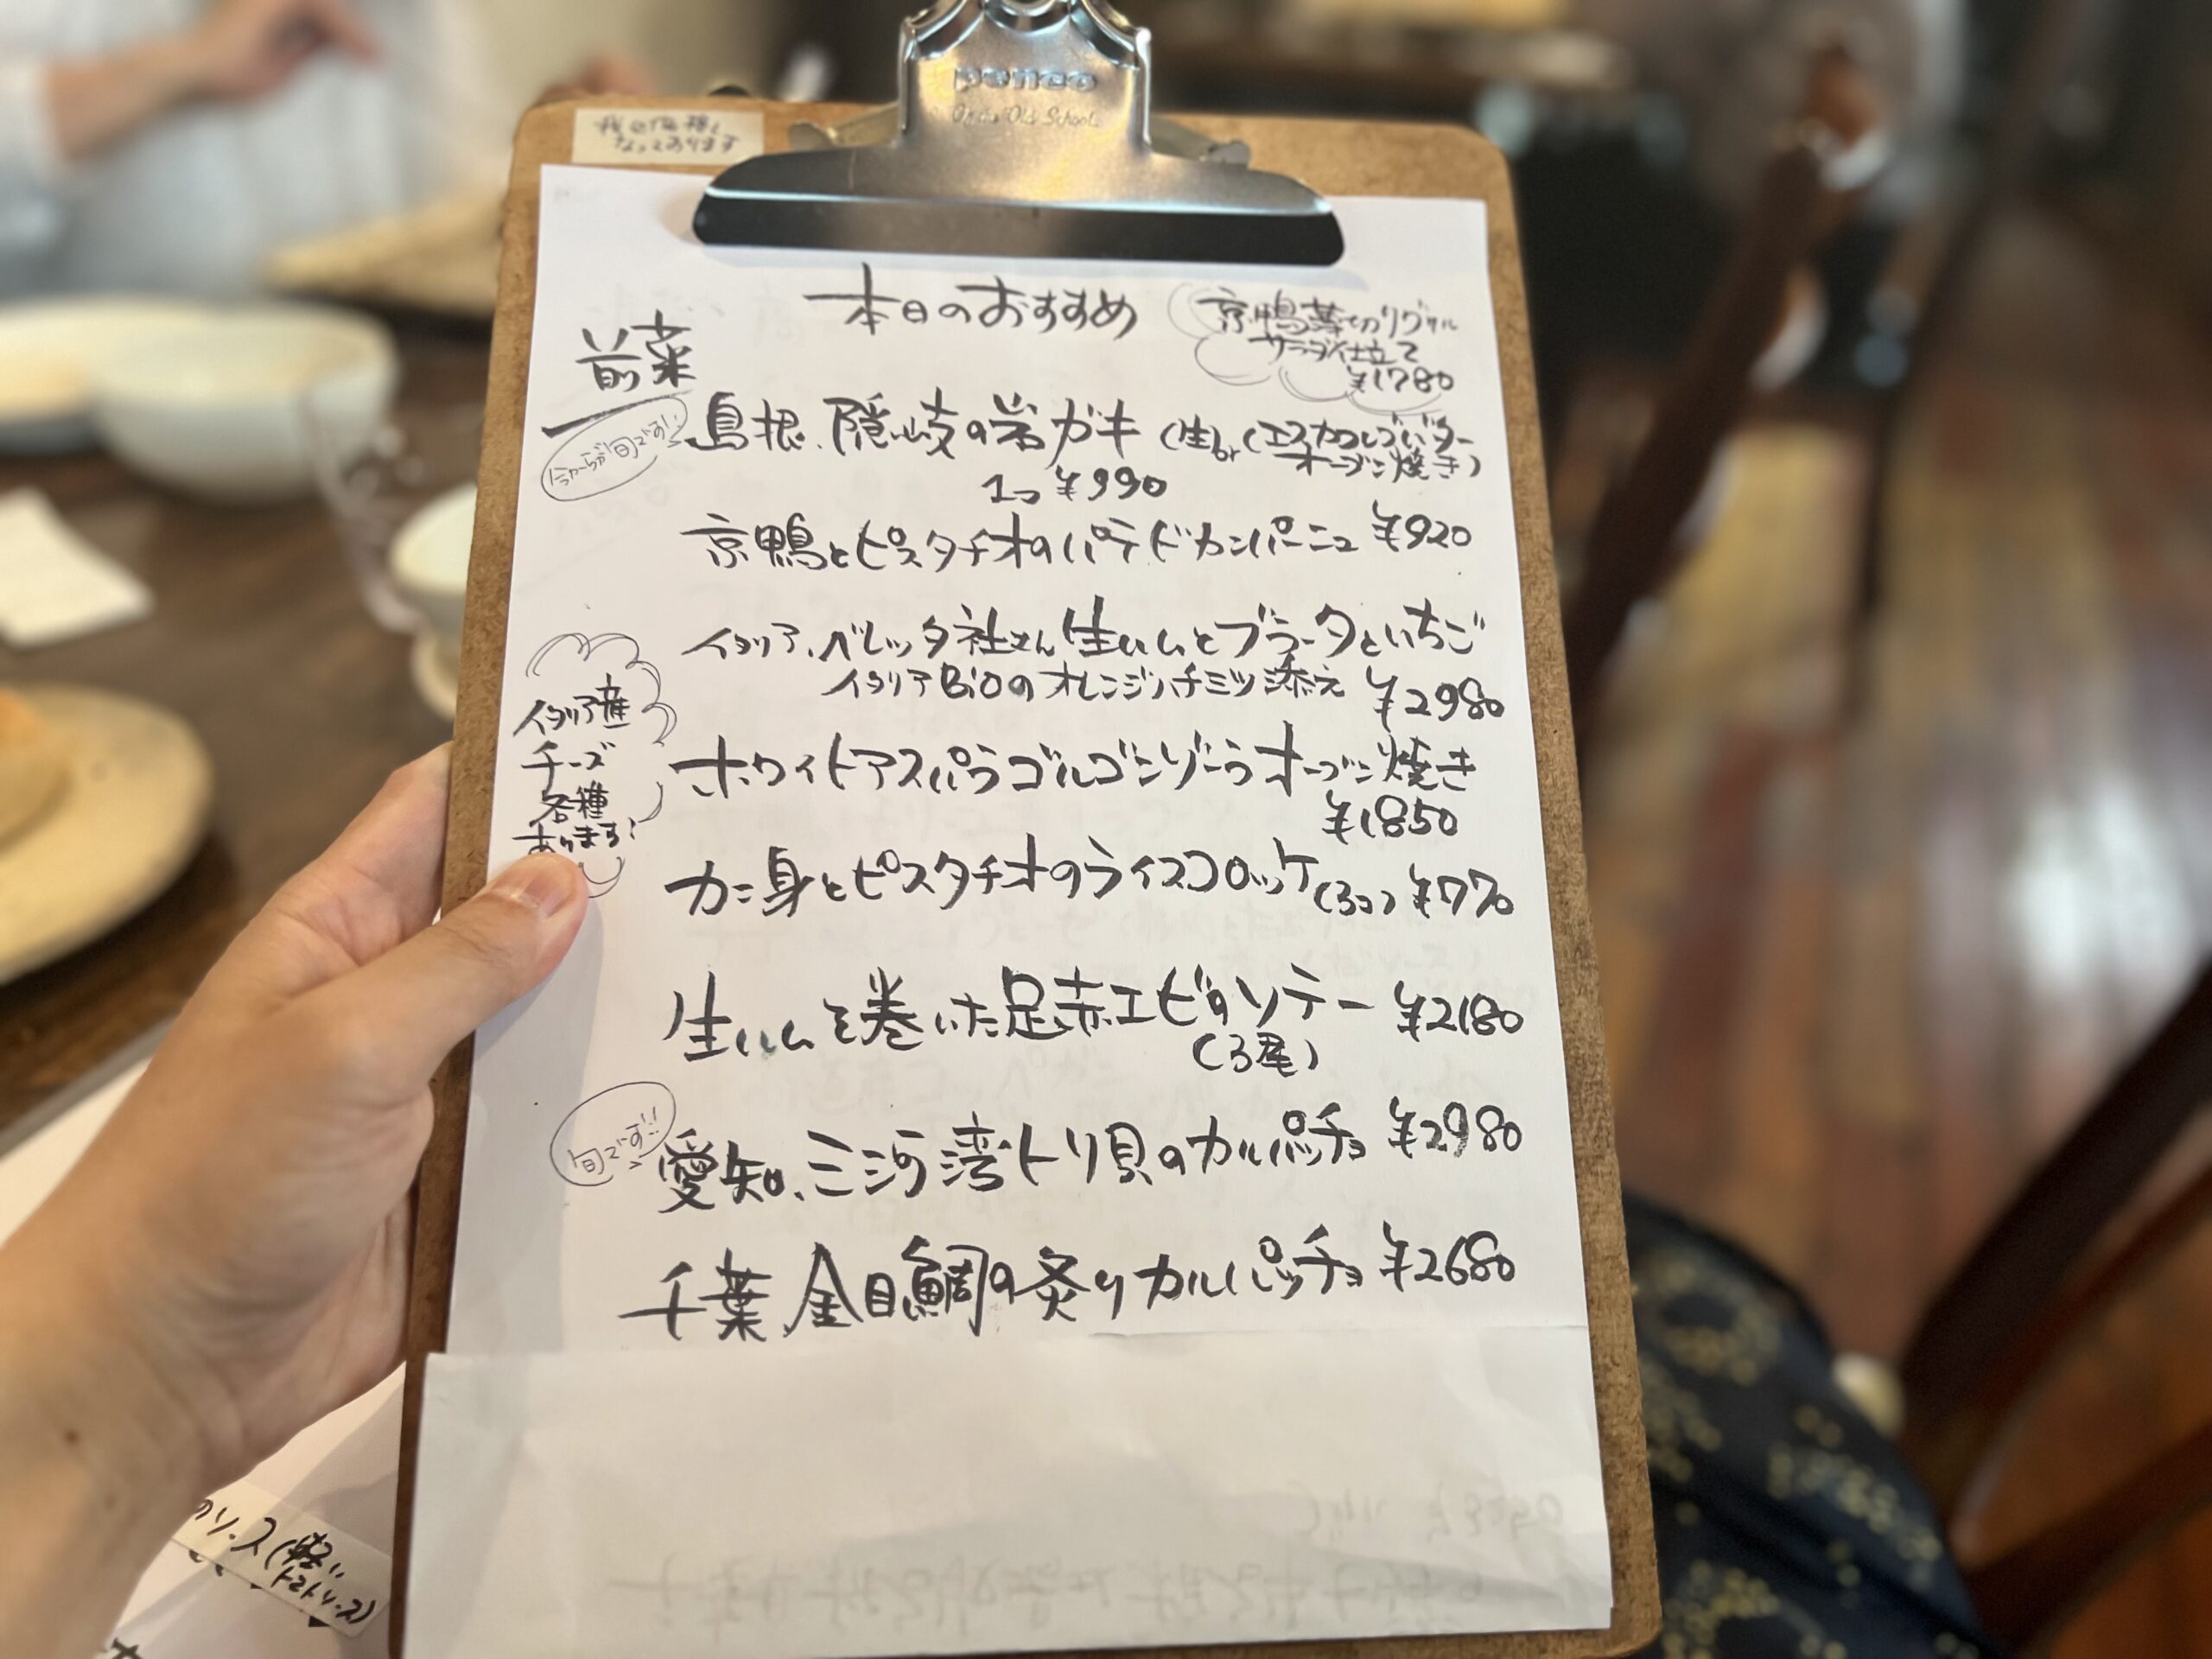 penco
Old School
なっております
本日のおすすめ
京鴨薄切りグリル
サラダ仕立て
¥1780
前菜
今からが旬です!
島根、隠岐の岩ガキ(生or(エスカルゴバター
オーブン焼き)
1コ¥990
京鴨とピスタチオのパテドカンパーニュ ¥920
イタリア、ベレッタ社さん生ハムとブラータといちご
イタリアBioのオレンジハチミツ添え ¥2980
イタリア産
チーズ
各種
あります!
ホワイトアスパラゴルゴンゾーラオーブン焼き
¥1850
カニ身とピスタチオのライスコロッケ(3コ)¥770
生ハムを巻いた足赤エビのソテー ¥2180
(3尾)
旬です!!
愛知、三河湾トリ貝のカルパッチョ ¥2980
千葉 金目鯛の炙りカルパッチョ ¥2680
のソース(軽い
トマトソース)